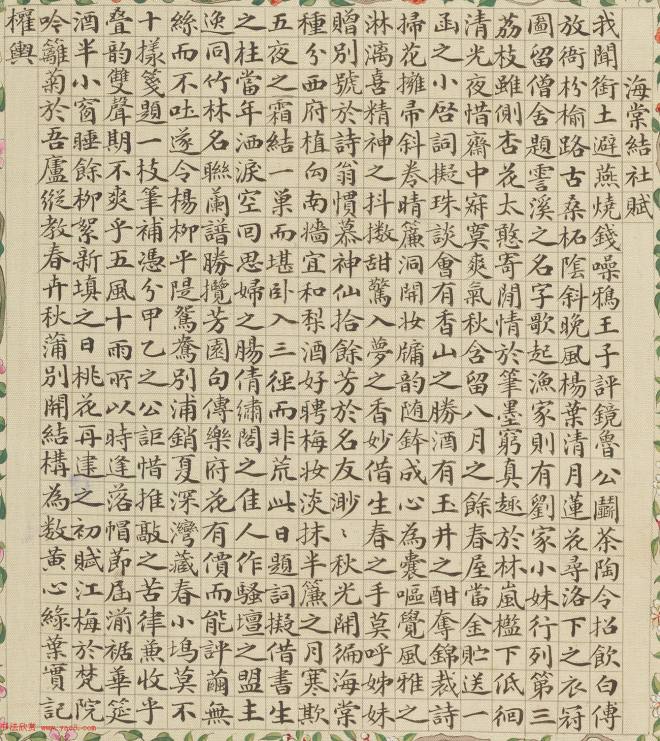 海棠結社賦
我聞銜土避燕燒錢噪鴉王子評鏡魯公鬭茶陶令招飲白傅
放衙枌榆路古桑柘陰斜晚風楊葉清月蓮花尋洛下之衣冠
圖留僧舍題雲溪之名字歌起漁家則有劉家小妹行列第三
荔枝雖側杏花太憨寄閒情於筆墨窮真趣於林嵐檻下低徊
清光夜惜齋中寂寞爽氣秋含留八月之餘春屋當金貯送一
函之小啓詞擬珠談會有香山之勝酒有玉井之酣奪錦裁詩
掃花擁帚斜卷晴簾洞開妝牖韵随鉢成心為囊嘔覺風雅之
淋漓喜精神之抖擻甜驚入夢之香妙借生春之手莫呼姊妹
贈別號於詩翁慣慕神仙拾餘芳於名友渺〻秋光開徧海棠
種分西府植向南牆宜和梨酒好聘梅妝淡抹半簾之月寒欺
五夜之霜結一巢而堪卧入三徑而非荒此日題詞擬借書生
之柱當年洒淚空回思婦之腸倩繡閣之佳人作騷壇之盟主
逸同竹林名聯蘭譜勝攬芳園句傳樂府花有價而能評繭無
絲而不吐遂令楊柳平隄鴛鴦別浦銷夏深灣藏春小塢莫不
十樣箋題一枝筆補憑分甲乙之公詎惜推敲之苦律兼收乎
叠韵雙聲期不爽乎五風十雨所以時逢落帽節屆湔裾華筵
酒半小窗睡餘柳絮新填之日桃花再建之初賦江梅於梵院
吟籬菊於吾廬縱教春卉秋蒲別開結構為數黃心綠葉實記
權輿
书法欣赏 www.yac8.com